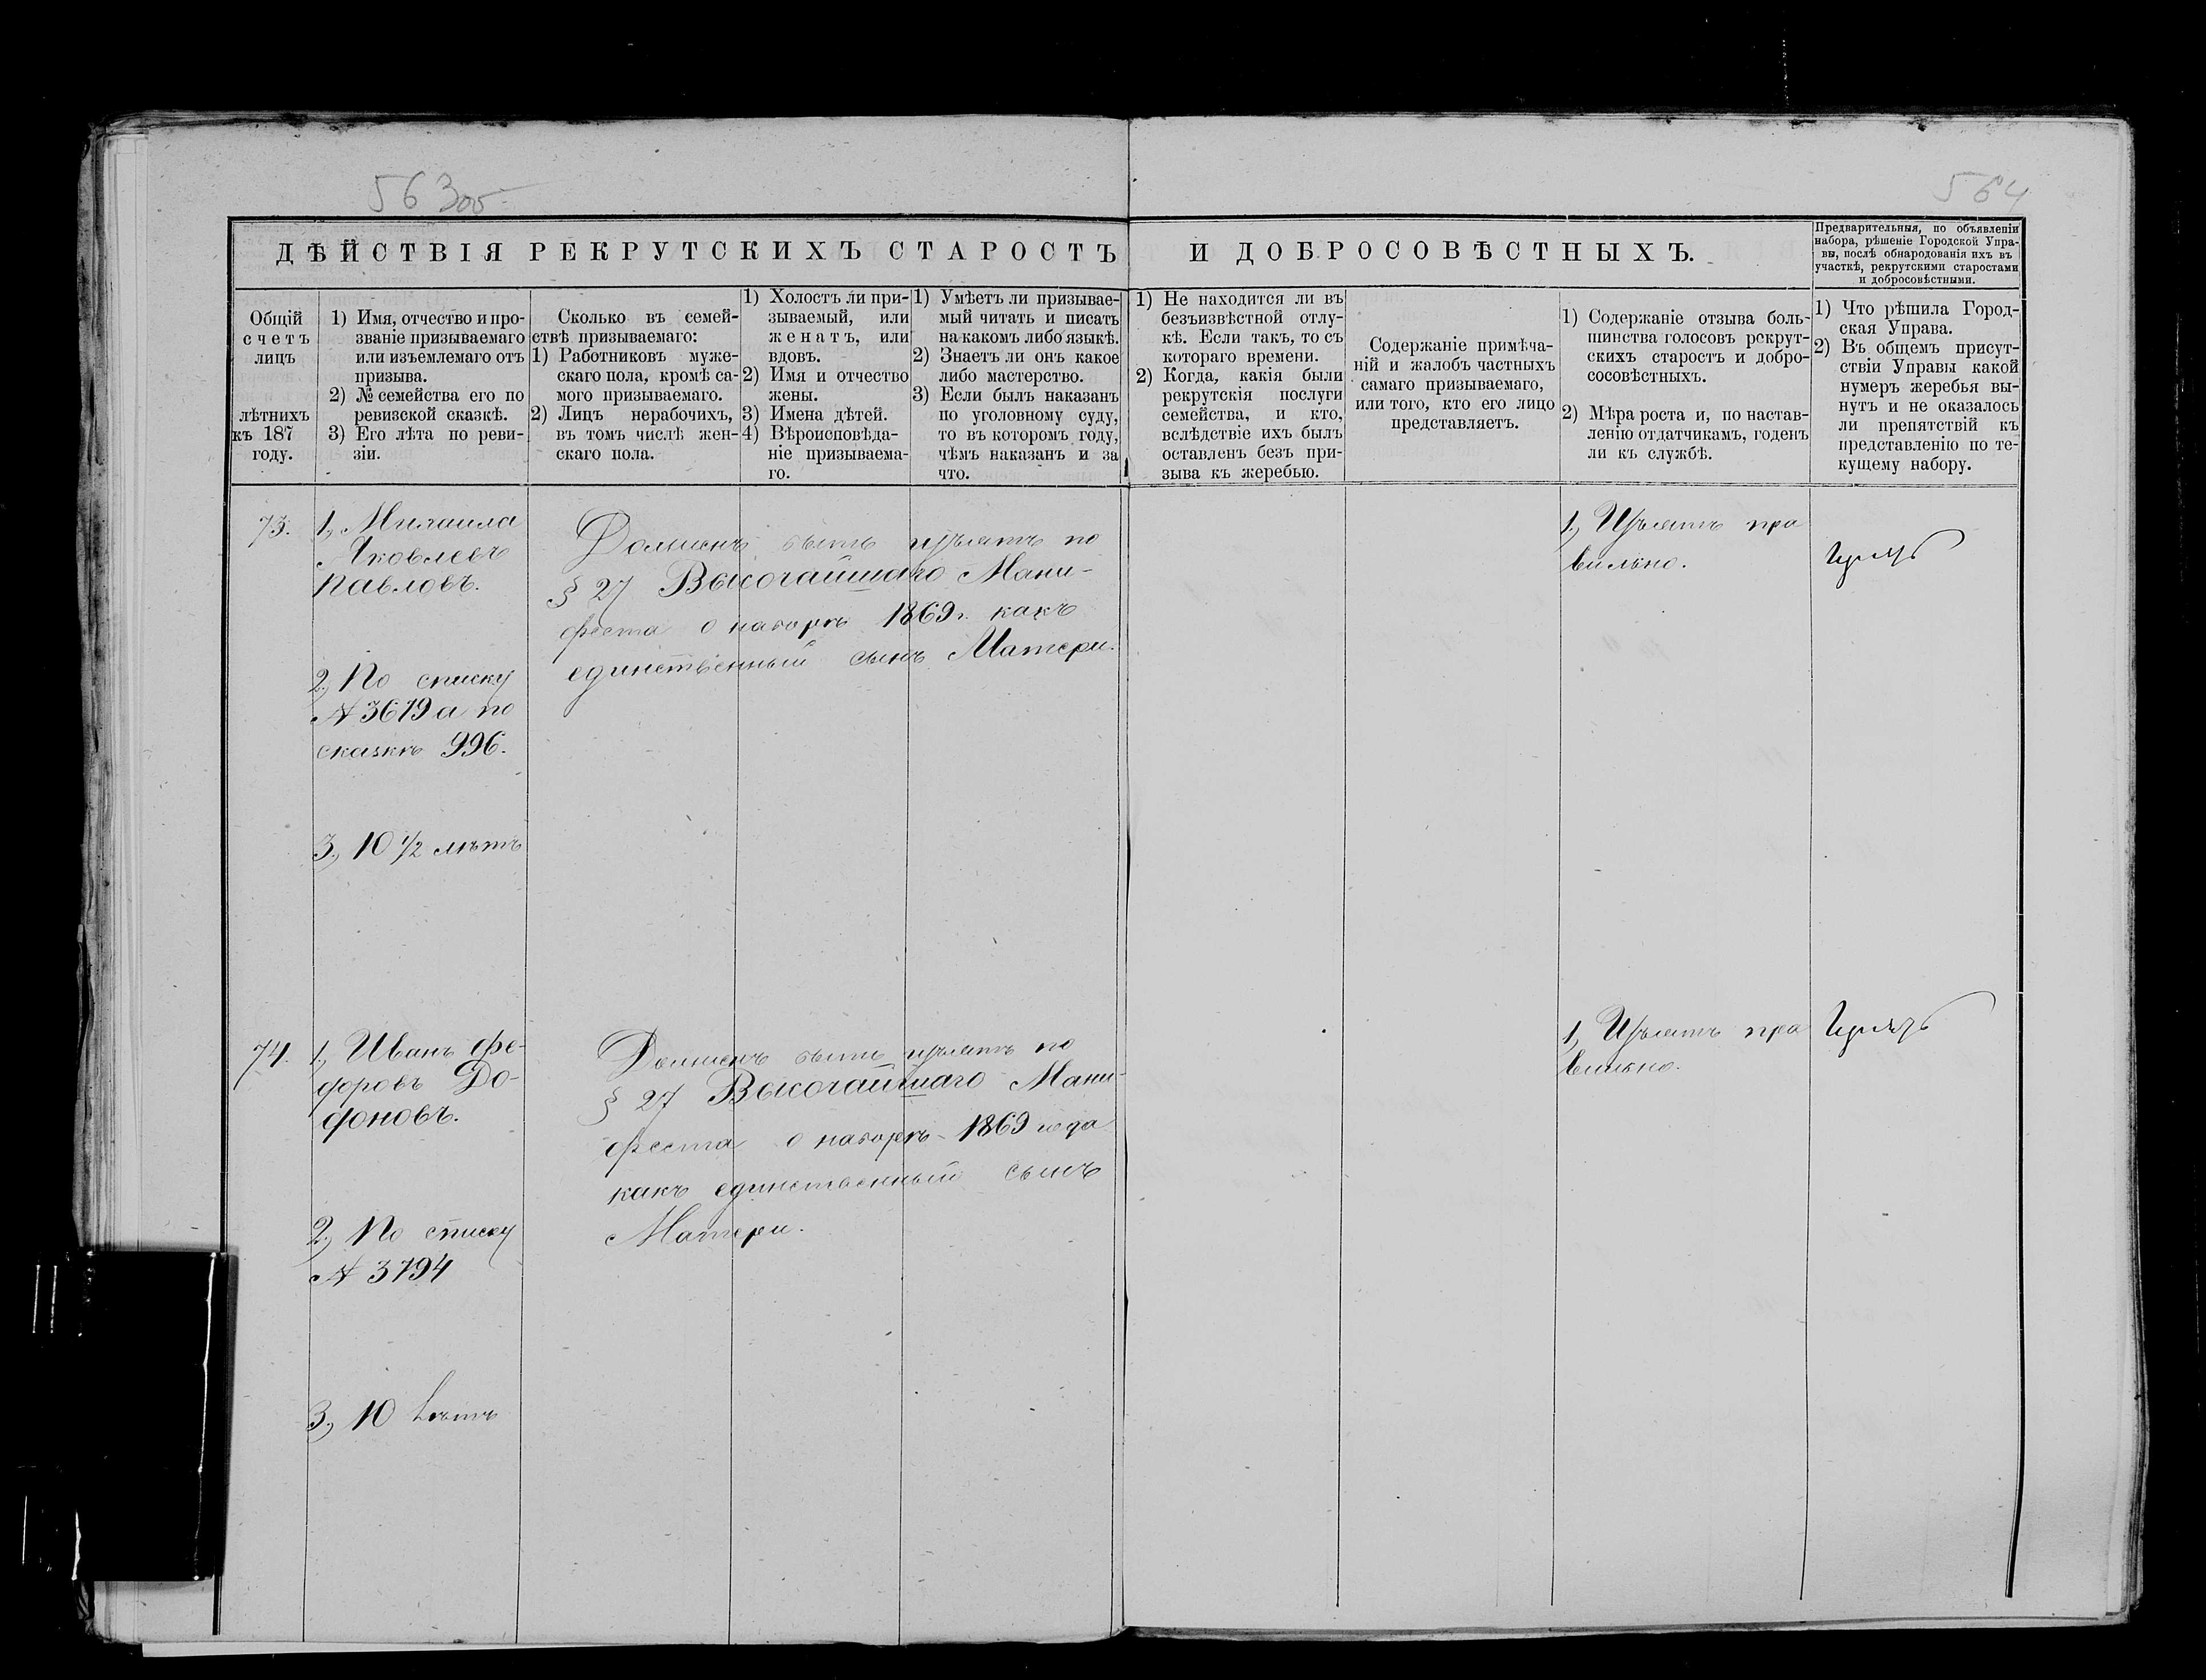 563об
564
ДѢЙСТВІЯ РЕКРУТСКИХЪ СТАРОСТЪ И ДОБРОСОВѢСТНЫХЪ.
Предварительныя, по объявленіи
набора, рѣшеніе Городской Упра-
вы, послѣ обнародованія ихъ въ
участкѣ, рекрутскими старостами
и добросовѣстными.
Общій
счетъ
лицъ
лѣтнихъ
къ 187
году.
1) Имя, отчество и про-
званіе призываемаго
или изъемлемаго отъ
призыва.
2) № семейства его по
ревизской сказкѣ.
3) Его лѣта по реви-
зіи.
Сколько въ семей-
ствѣ призываемаго:
1) Работниковъ муже-
скаго пола, кромѣ са-
мого призываемаго.
2) Лицъ нерабочихъ,
въ томъ числѣ жен-
скаго пола.
1) Холостъ ли при-
зываемый, или
женатъ, или
вдовъ.
2) Имя и отчество
жены.
3) Имена дѣтей.
4) Вѣроисповѣда-
ніе призываема-
го.
1) Умѣетъ ли призывае-
мый читать и писать
на какомъ либо языкѣ.
2) Знаетъ ли онъ какое
либо мастерство.
3) Если былъ наказанъ
по уголовному суду,
то въ которомъ году,
чѣмъ наказанъ и за
что.
1) Не находится ли въ
безъизвѣстной отлу-
кѣ. Если такъ, то съ
котораго времени.
2) Когда, какія были
рекрутскія послуги
семейства, и кто,
вслѣдствіе ихъ былъ
оставленъ безъ при-
зыва къ жеребью.
Содержаніе примѣча-
ній и жалобъ частныхъ
самаго призываемаго,
или того, кто его лицо
представляетъ.
1) Содержаніе отзыва боль-
шинства голосовъ рекрут-
скихъ старостъ и добро-
сосовѣстныхъ.
2) Мѣра роста и, по настав-
ленію отдатчикамъ, годенъ
ли къ службѣ.
1) Что рѣшила Город-
ская Управа.
2) Въ общемъ присут-
ствіи Управы какой
нумеръ жеребья вы-
нутъ и не оказалось
ли препятствій къ
представленію по те-
кущему набору.
73.
1, Михаила
Яковлевъ
Павловъ.
2, По списку
№ 3619 а по
сказкѣ 996.
3, 10 1/2 лѣтъ
Долженъ быть изъятъ по
§ 27 Высочайшаго Мани-
феста о наборѣ 1869 г. какъ
единственный сынъ Матери.
1, Изъятъ пра
вильно.
Изъятъ
74.
1, Иванъ Фе-
доровъ До-
фоновъ.
2, По списку
№ 3794
3, 10 лѣтъ
Долженъ быть изъятъ по
§ 27 Высочайшаго Мани-
феста о наборѣ 1869 года
какъ единственный сынъ
Матери.
1, Изъятъ пра
вильно.
Изъятъ